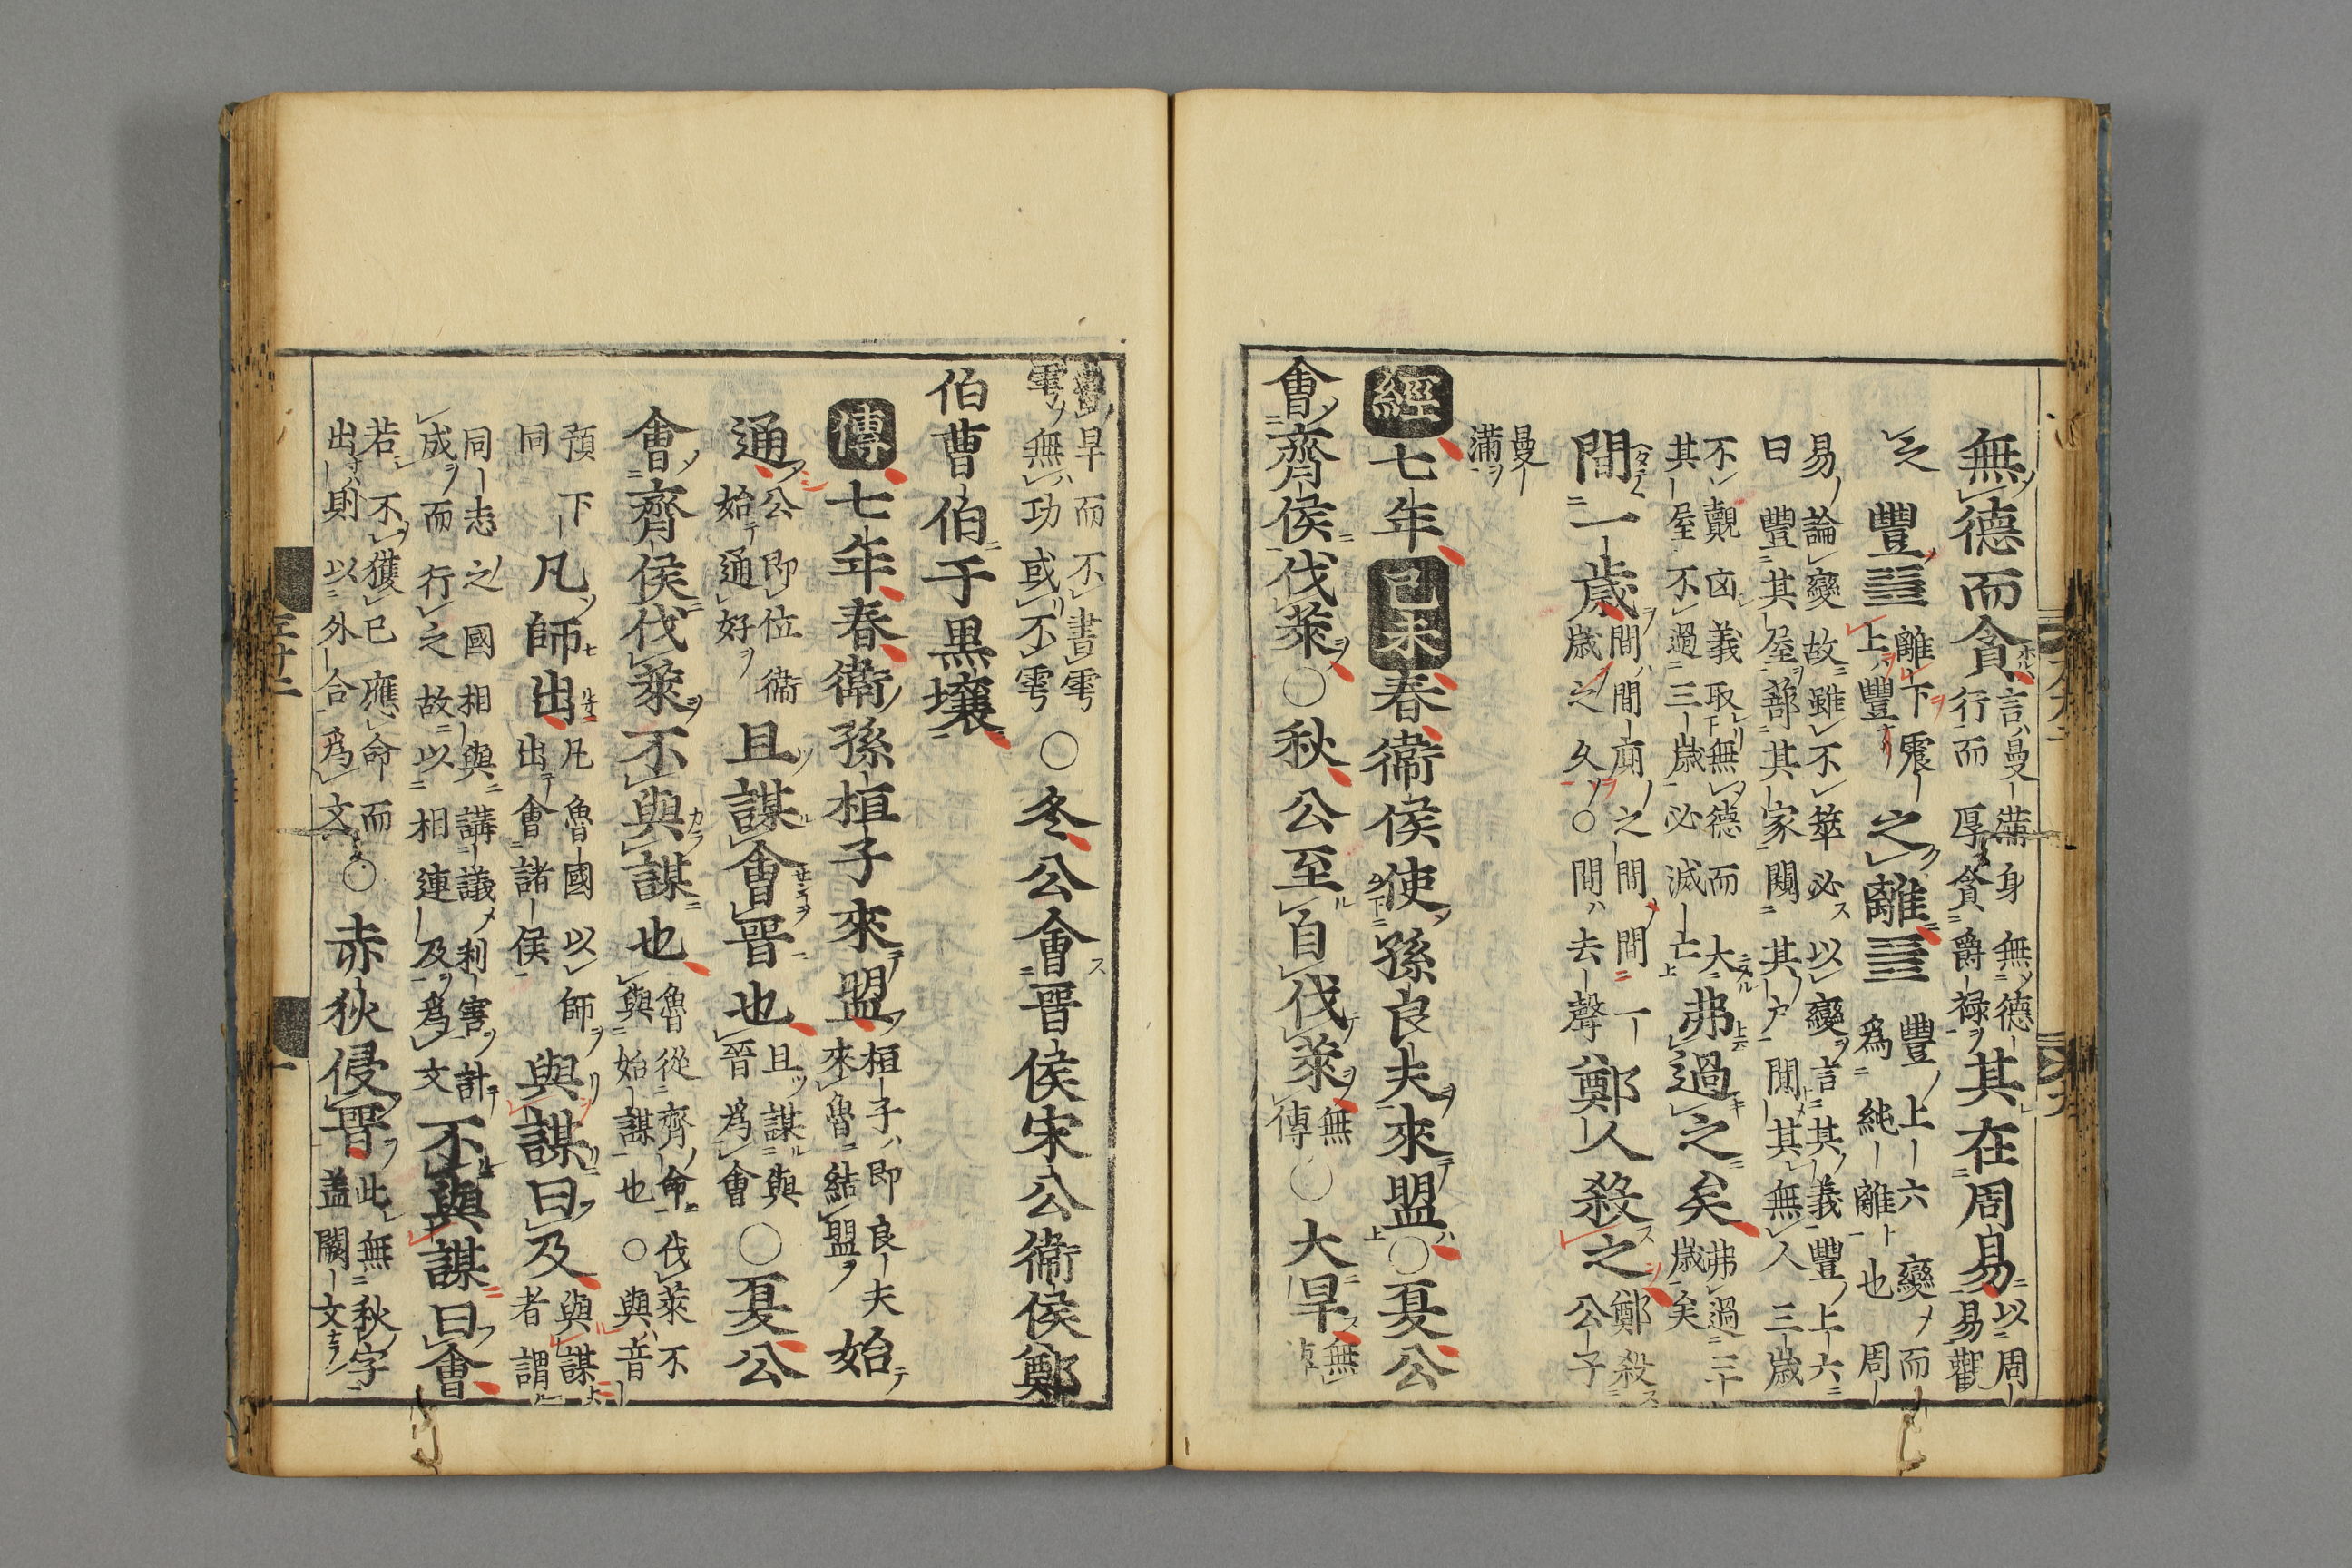 無德而貪言曼滿身無德行而厚貪爵祿其在周易以周易觀
之豐䷶離下震上豐之離䷝豐上六變而爲純離也周
易論變故雖不筮必以變言其義豐上六
曰豐其屋蔀其家闚其戶闃其無人三歲
不覿凶義取無德而大
其屋不過三歲必滅亡弗過之矣弗過二十歲矣
間一歲間間廁之間間一歲之久○間去聲鄭人殺之鄭殺公子
曼滿
經七年己未春衛侯使孫良夫來盟○夏公
會齊侯伐萊○秋公至自伐萊無傳○大旱無
書旱而不書雩雩無功或不雩○冬公會晉侯宋公衛侯鄭
伯曹伯于黑壤
傳七年春衛孫桓子來盟桓子即良夫來魯結盟始
通公即位衛始通好且謀會晉也且謀與晉爲會○夏公
會齊侯伐萊不與謀也魯從齊命伐萊不與始謀也○與音
預下同凡師出凡魯國以師出會諸侯與謀曰及與謀者謂
同志之國相與講議利害計成而行之故以相連及爲文不與謀曰會
若不獲已應命而出則以外合爲文○赤狄侵晉此無秋字蓋闕文